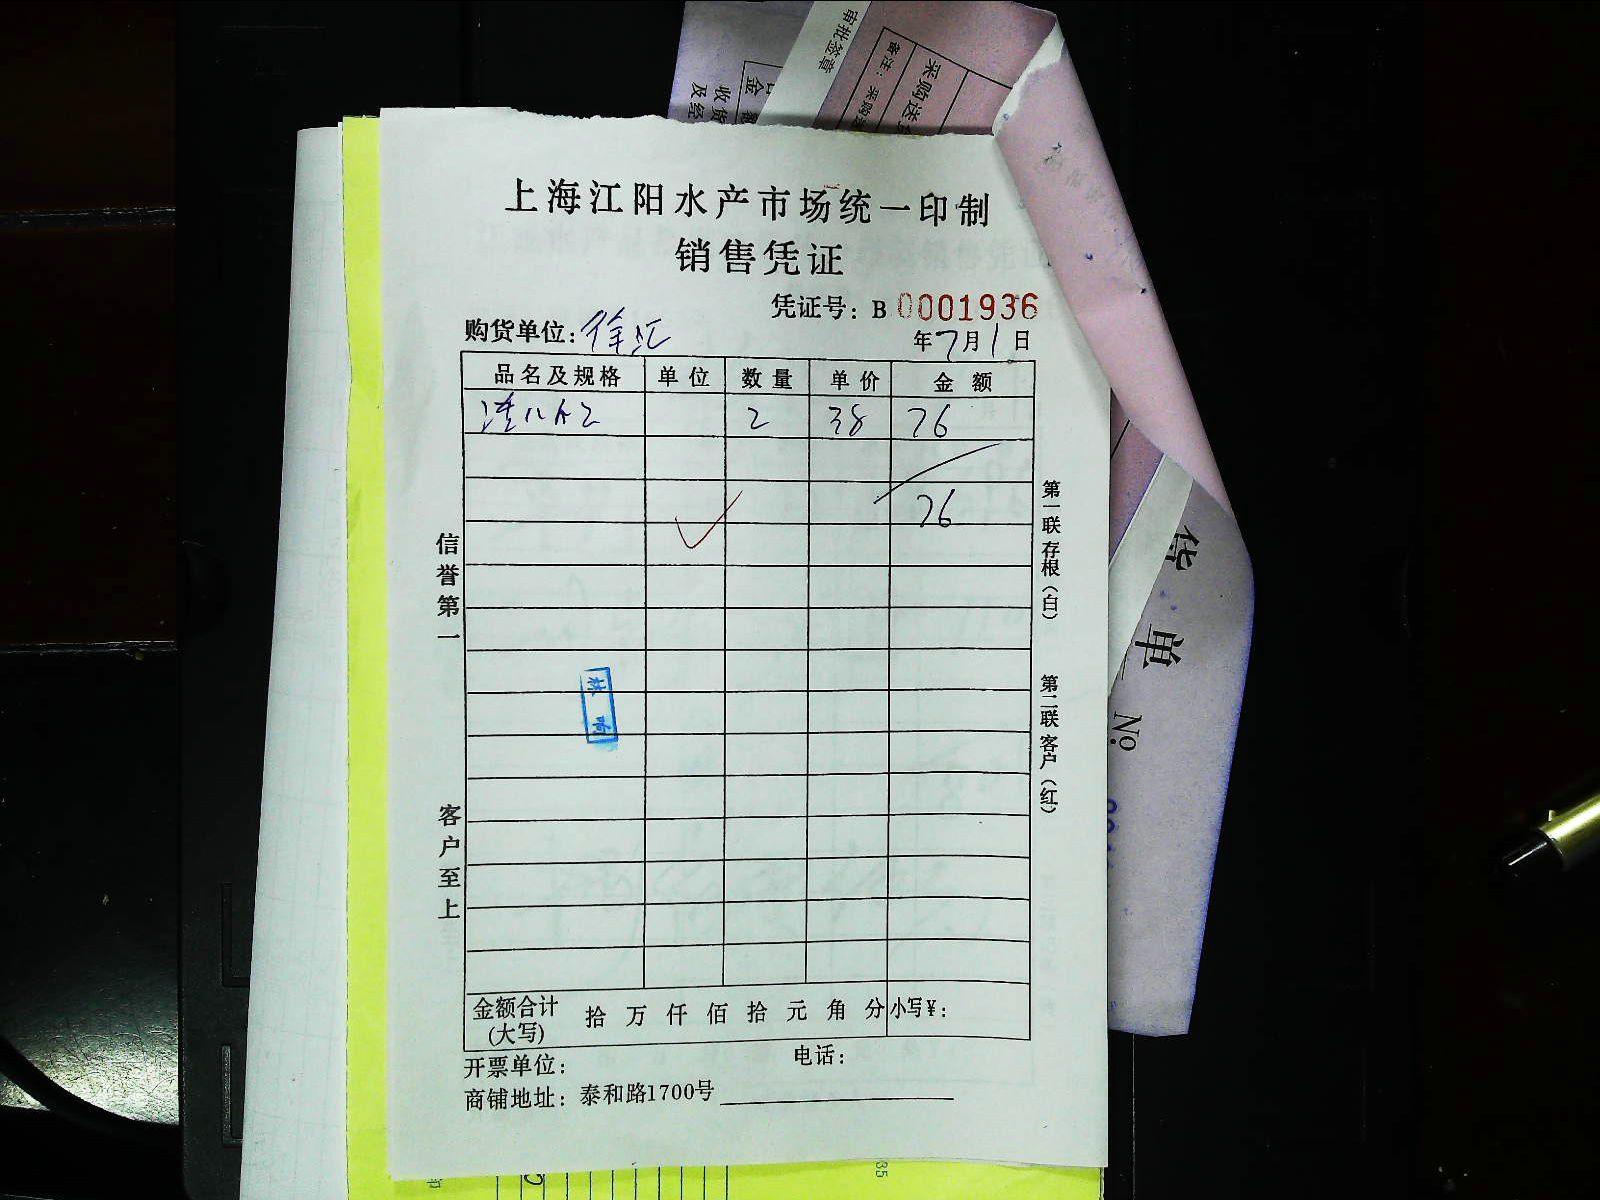 上海江阳水产市场统一印制
销售凭证
凭证号：B 0001936
购货单位：徐汇
年7月1日
品名及规格 单位 数量 单价 金额
2 38 76
76
信誉第一
客户至上
第一联存根（白）
第二联客户（红）
金额合计(大写) 拾万仟佰拾元角分 小写¥：
开票单位： 电话：
商铺地址：泰和路1700号
审批签章
备注：采购
采购送
金额
收货
及经
货单
№
35